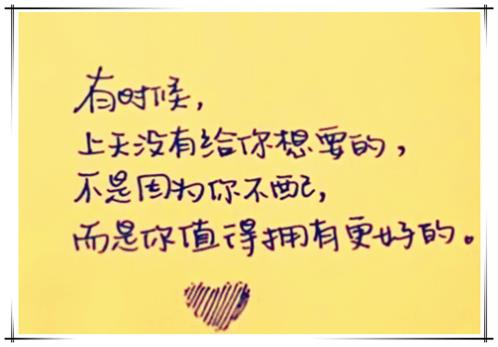 有时候，
上天没有给你想要的，
不是因为你不配，
而是你值得拥有更好的。